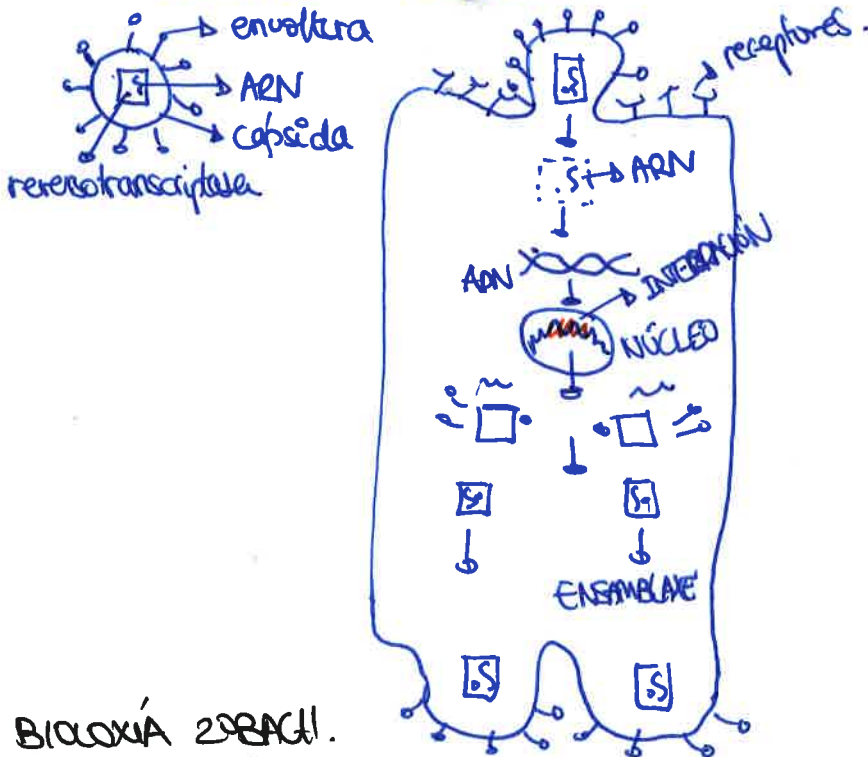 envoltura
ARN
cápsida
reversotranscriptasa
receptores.
ARN
ADN
INTEGRACIÓN
NÚCLEO
ENSAMBLAXE
BIOLOXÍA 2ºBACH.